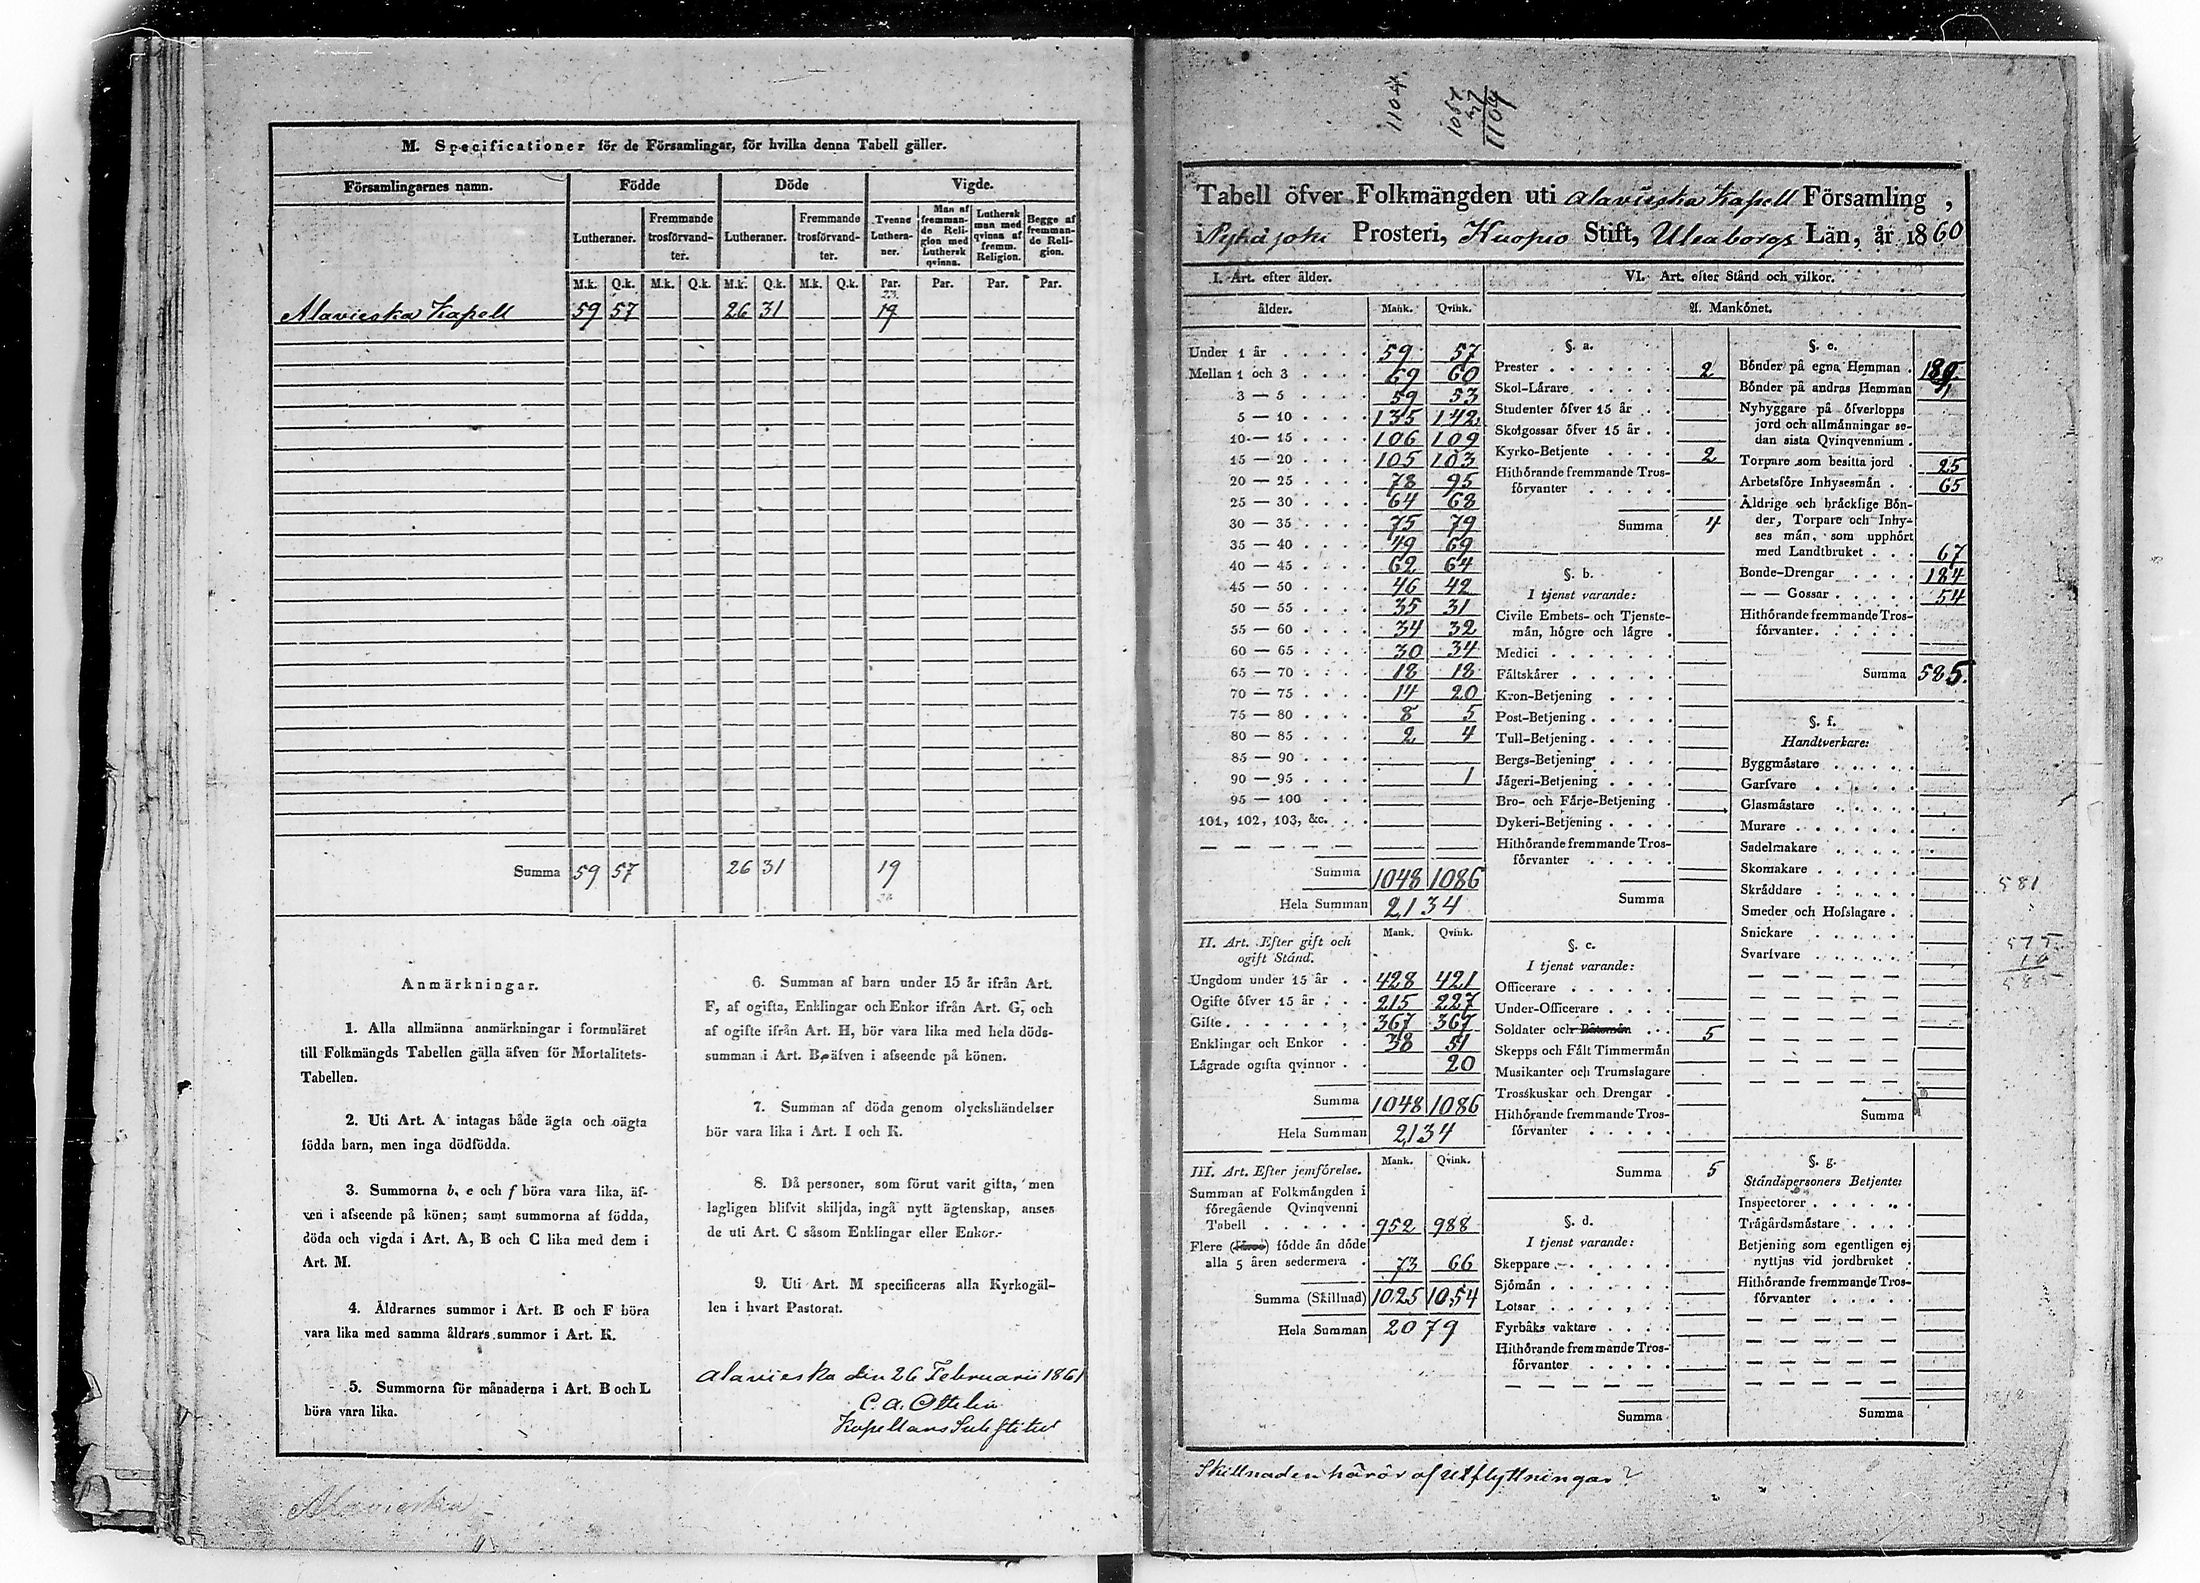 M. Specificationer för de Församlingar, för hvilka denna Tabell gäller.
Församlingarnes namn. Födde Döde Vigde.
Lutheraner. Fremmande trosförvandter. Lutheraner. Fremmande trosförvandter. Tvenne Lutheraner. Man af fremmande Religion med Luthersk qvinna. Luthersk man med qvinna af fremm. Religion. Begge af fremmande Religion.
M.k. Q.k. M.k. Q.k. M.k. Q.k. M.k. Q.k. Par. Par. Par. Par.
23.
Alavieska Kapell 59 57 26 31 19
Summa 59 57 26 31 19
Anmärkningar.
1. Alla allmänna anmärkningar i formuläret
till Folkmängds Tabellen gälla äfven för Mortalitets-
Tabellen.
2. Uti Art. A intagas både ägta och oägta
födda barn, men inga dödfödda.
3. Summorna b, e och f böra vara lika, äf-
ven i afseende på könen; samt summorna af födda,
döda och vigda i Art. A, B och C lika med dem i
Art. M.
4. Åldrarnes summor i Art. B och F böra
vara lika med samma åldrars summor i Art. K.
5. Summorna för månaderna i Art. B och L
böra vara lika.
6. Summan af barn under 15 år ifrån Art.
F, af ogifta, Enklingar och Enkor ifrån Art. G, och
af ogifte ifrån Art. H, bör vara lika med hela döds-
summan i Art. B, äfven i afseende på könen.
7. Summan af döda genom olyckshändelser
bör vara lika i Art. I och K.
8. Då personer, som förut varit gifta, men
lagligen blifvit skiljda, ingå nytt ägtenskap, anses
de uti Art. C såsom Enklingar eller Enkor.
9. Uti Art. M specificeras alla Kyrkogäl-
len i hvart Pastorat.
Alavieska den 26 Februarii 1861
C. A. Ottelin
Kapellans Substitut
Alavieska
1104
1067
37
1104
Tabell öfver Folkmängden uti Alavieska Kapell Församling,
i Pyhäjoki Prosteri, Kuopio Stift, Uleaborgs Län, år 1860
I. Art. efter ålder.
ålder. Mank. Qvink.
Under 1 år 59 57
Mellan 1 och 3 69 60
3 — 5 59 53
5 — 10 135 142
10 — 15 106 109
15 — 20 105 103
20 — 25 78 95
25 — 30 64 68
30 — 35 75 79
35 — 40 49 69
40 — 45 62 64
45 — 50 46 42
50 — 55 35 31
55 — 60 34 32
60 — 65 30 34
65 — 70 18 18
70 — 75 14 20
75 — 80 8 5
80 — 85 2 4
85 — 90
90 — 95 1
95 — 100
101, 102, 103, &c.
Summa 1048 1086
Hela Summan 2134
II. Art. Efter gift och ogift Stånd. Mank. Qvink.
Ungdom under 15 år 428 421
Ogifte öfver 15 år 215 227
Gifte 367 367
Enklingar och Enkor 38 51
Lägrade ogifta qvinnor 20
Summa 1048 1086
Hela Summan 2134
III. Art. Efter jemförelse. Mank. Qvink.
Summan af Folkmängden i
föregående Qvinqvenni
Tabell 952 988
Flere (färre) födde än döde
alla 5 åren sedermera 73 66
Summa (Skillnad) 1025 1054
Hela Summan 2079
VI. Art. efter Stånd och vilkor.
A. Mankönet.
§. a.
Prester 2
Skol-Lärare
Studenter öfver 15 år
Skolgossar öfver 15 år
Kyrko-Betjente 2
Hithörande fremmande Tros-
förvanter
Summa 4
§. b.
I tjenst varande:
Civile Embets- och Tjenste-
män, högre och lägre
Medici
Fältskärer
Kron-Betjening
Post-Betjening
Tull-Betjening
Bergs-Betjening
Jägeri-Betjening
Bro- och Färje-Betjening
Dykeri-Betjening
Hithörande fremmande Tros-
förvanter
Summa
§. c.
I tjenst varande:
Officerare
Under-Officerare
Soldater och Båtsmän 5
Skepps och Fält Timmermän
Musikanter och Trumslagare
Trosskuskar och Drengar
Hithörande fremmande Tros-
förvanter
Summa 5
§. d.
I tjenst varande:
Skeppare
Sjömän
Lotsar
Fyrbåks vaktare
Hithörande fremmande Tros-
förvanter
Summa
§. e.
Bönder på egna Hemman
Bönder på andras Hemman
Nybyggare på öfverlopps
jord och allmänningar se-
dan sista Qvinqvennium
Torpare som besitta jord 25
Arbetsföre Inhysesmän 65
Äldrige och bräcklige Bön-
der, Torpare och Inhy-
ses män, som upphört
med Landtbruket 67
Bonde-Drengar 184
— — Gossar 54
Hithörande fremmande Tros-
förvanter
Summa 585.
§. f.
Handtverkare:
Byggmästare
Garfvare
Glasmästare
Murare
Sadelmakare
Skomakare
Skräddare
Smeder och Hofslagare
Snickare
Svarfvare
Summa
§. g.
Ståndspersoners Betjente:
Inspectorer
Trägårdsmästare
Betjening som egentligen ej
nyttjas vid jordbruket
Hithörande fremmande Tros-
förvanter
Summa
581
575
10
585
1818
Skillnaden härör af utflyttningar